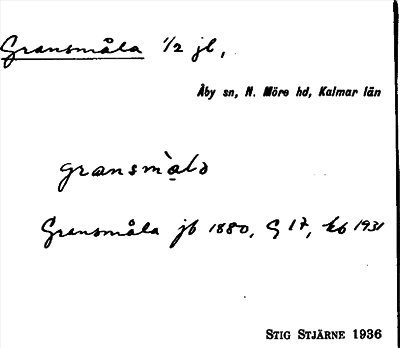 Gransmåla 1/2 jb,
Åby sn, N. Möre hd, Kalmar län
gransmə̀la
Gransmåla jb 1880, G 17, kb 1931
STIG STJÄRNE 1936